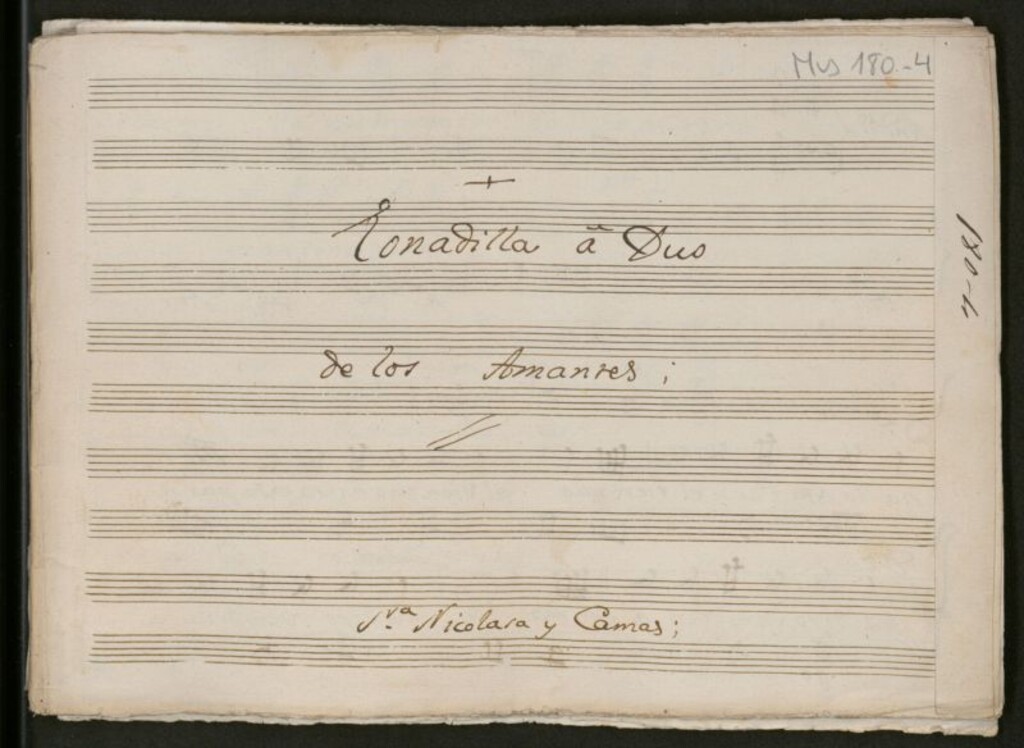 Mus 180-4
+
Tonadilla â Duo
de los Amantes;
S.ra Nicolasa y Camas;
180-4